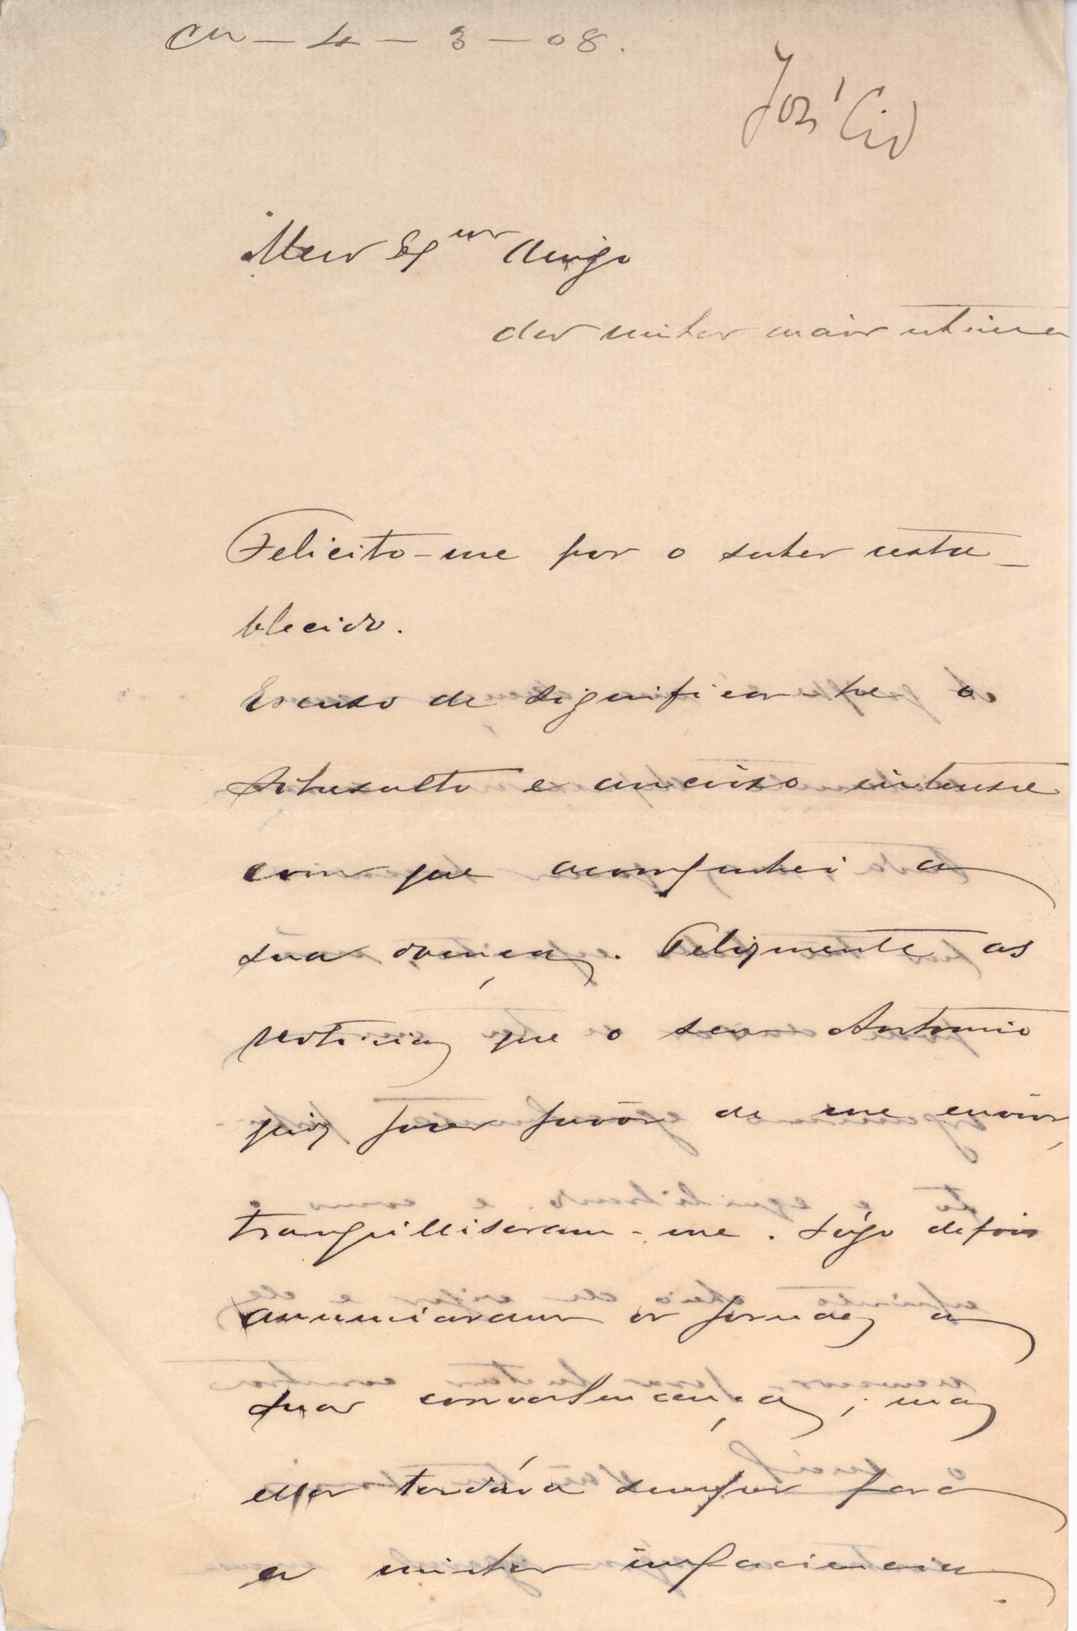 CM - 4 - 3 - 08.
José Cid
Meu Exmo Amigo
da minha maior estima
Felicito-me por o saber resta-
blecido.
Escuso de significar-lhe o
sobresalto e ancioso interesse
com que acompanhei a
sua doença. Felizmente as
noticias que o seu Antonio
quiz fazer favôr de me enviar,
tranquillisaram-me. Lógo depois
anunciaram os jornaes a
sua convalescença; mas
ella tardáva sempre para
a minha impaciencia.